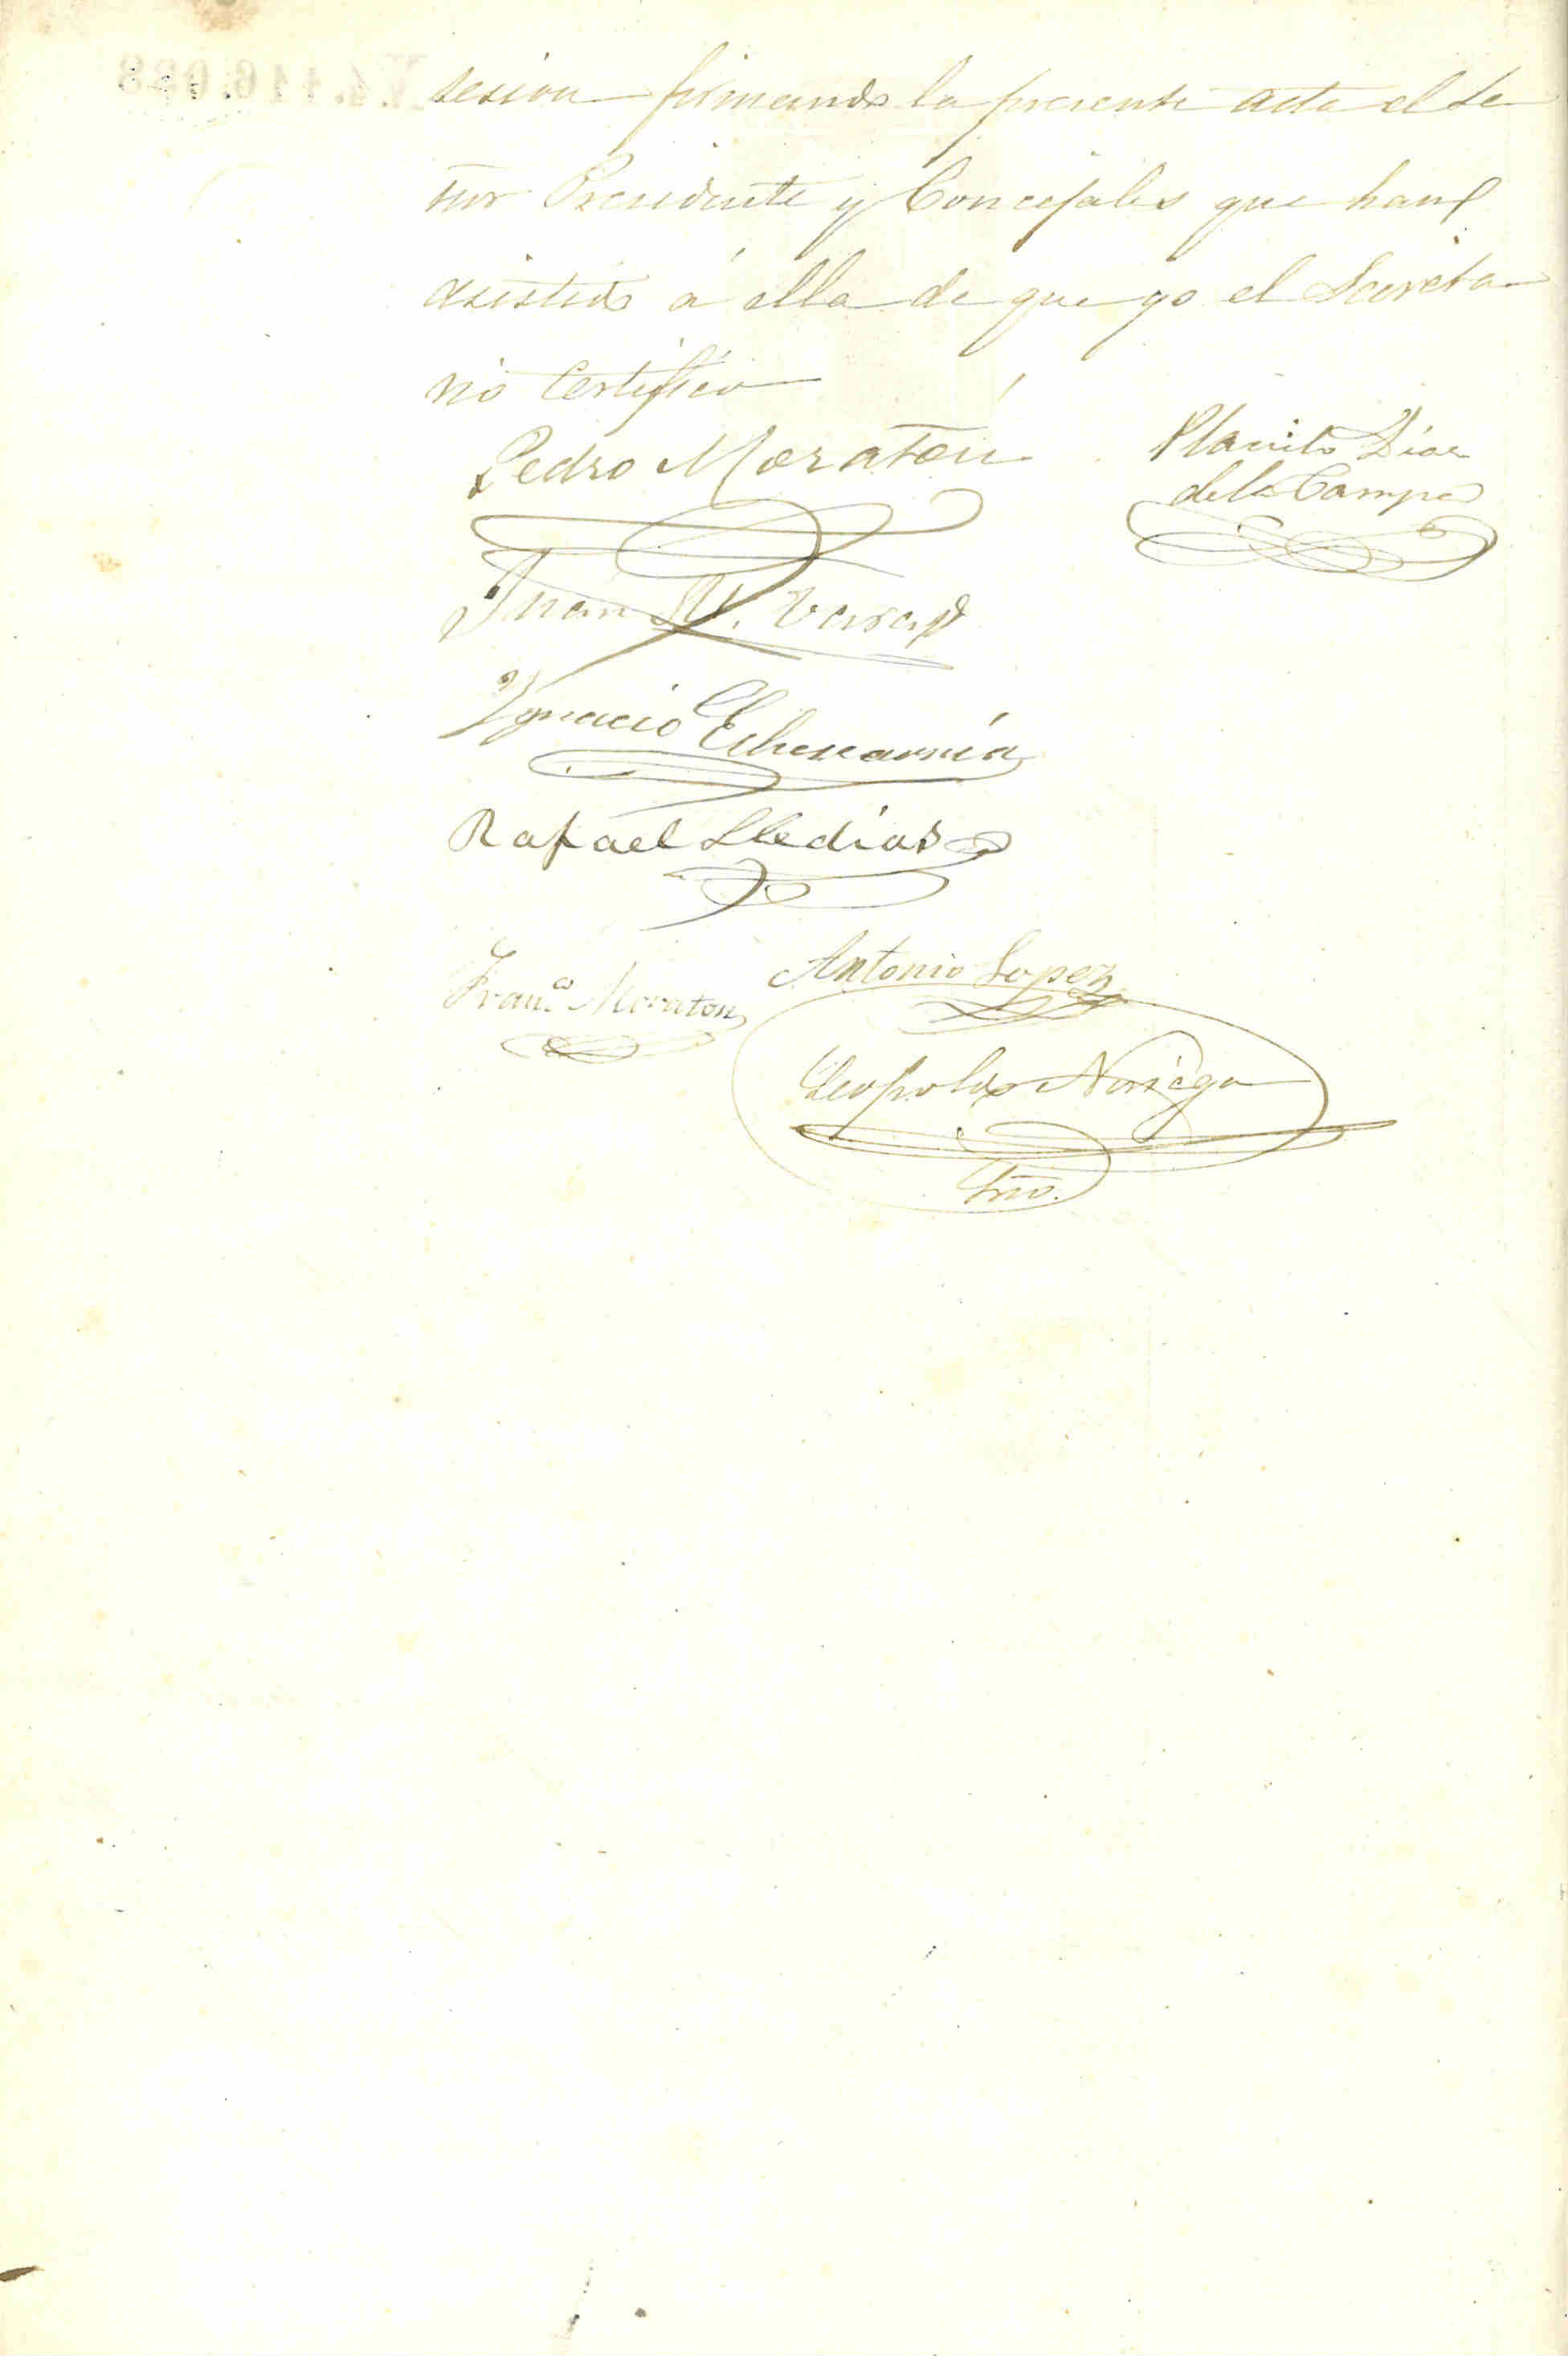 sesion firmando la presente acta el Se-
ñor Presidente y Concejales que han
asistido á ella de que yo el Secreta-
rio Certifico
Pedro Moratón
Placido Diaz
de la Campa
Juan M.
Ygnacio Echevarría
Rafael Lledias
Fran.co Moraton
Antonio Lopez
Leopoldo Noriega
Srio.